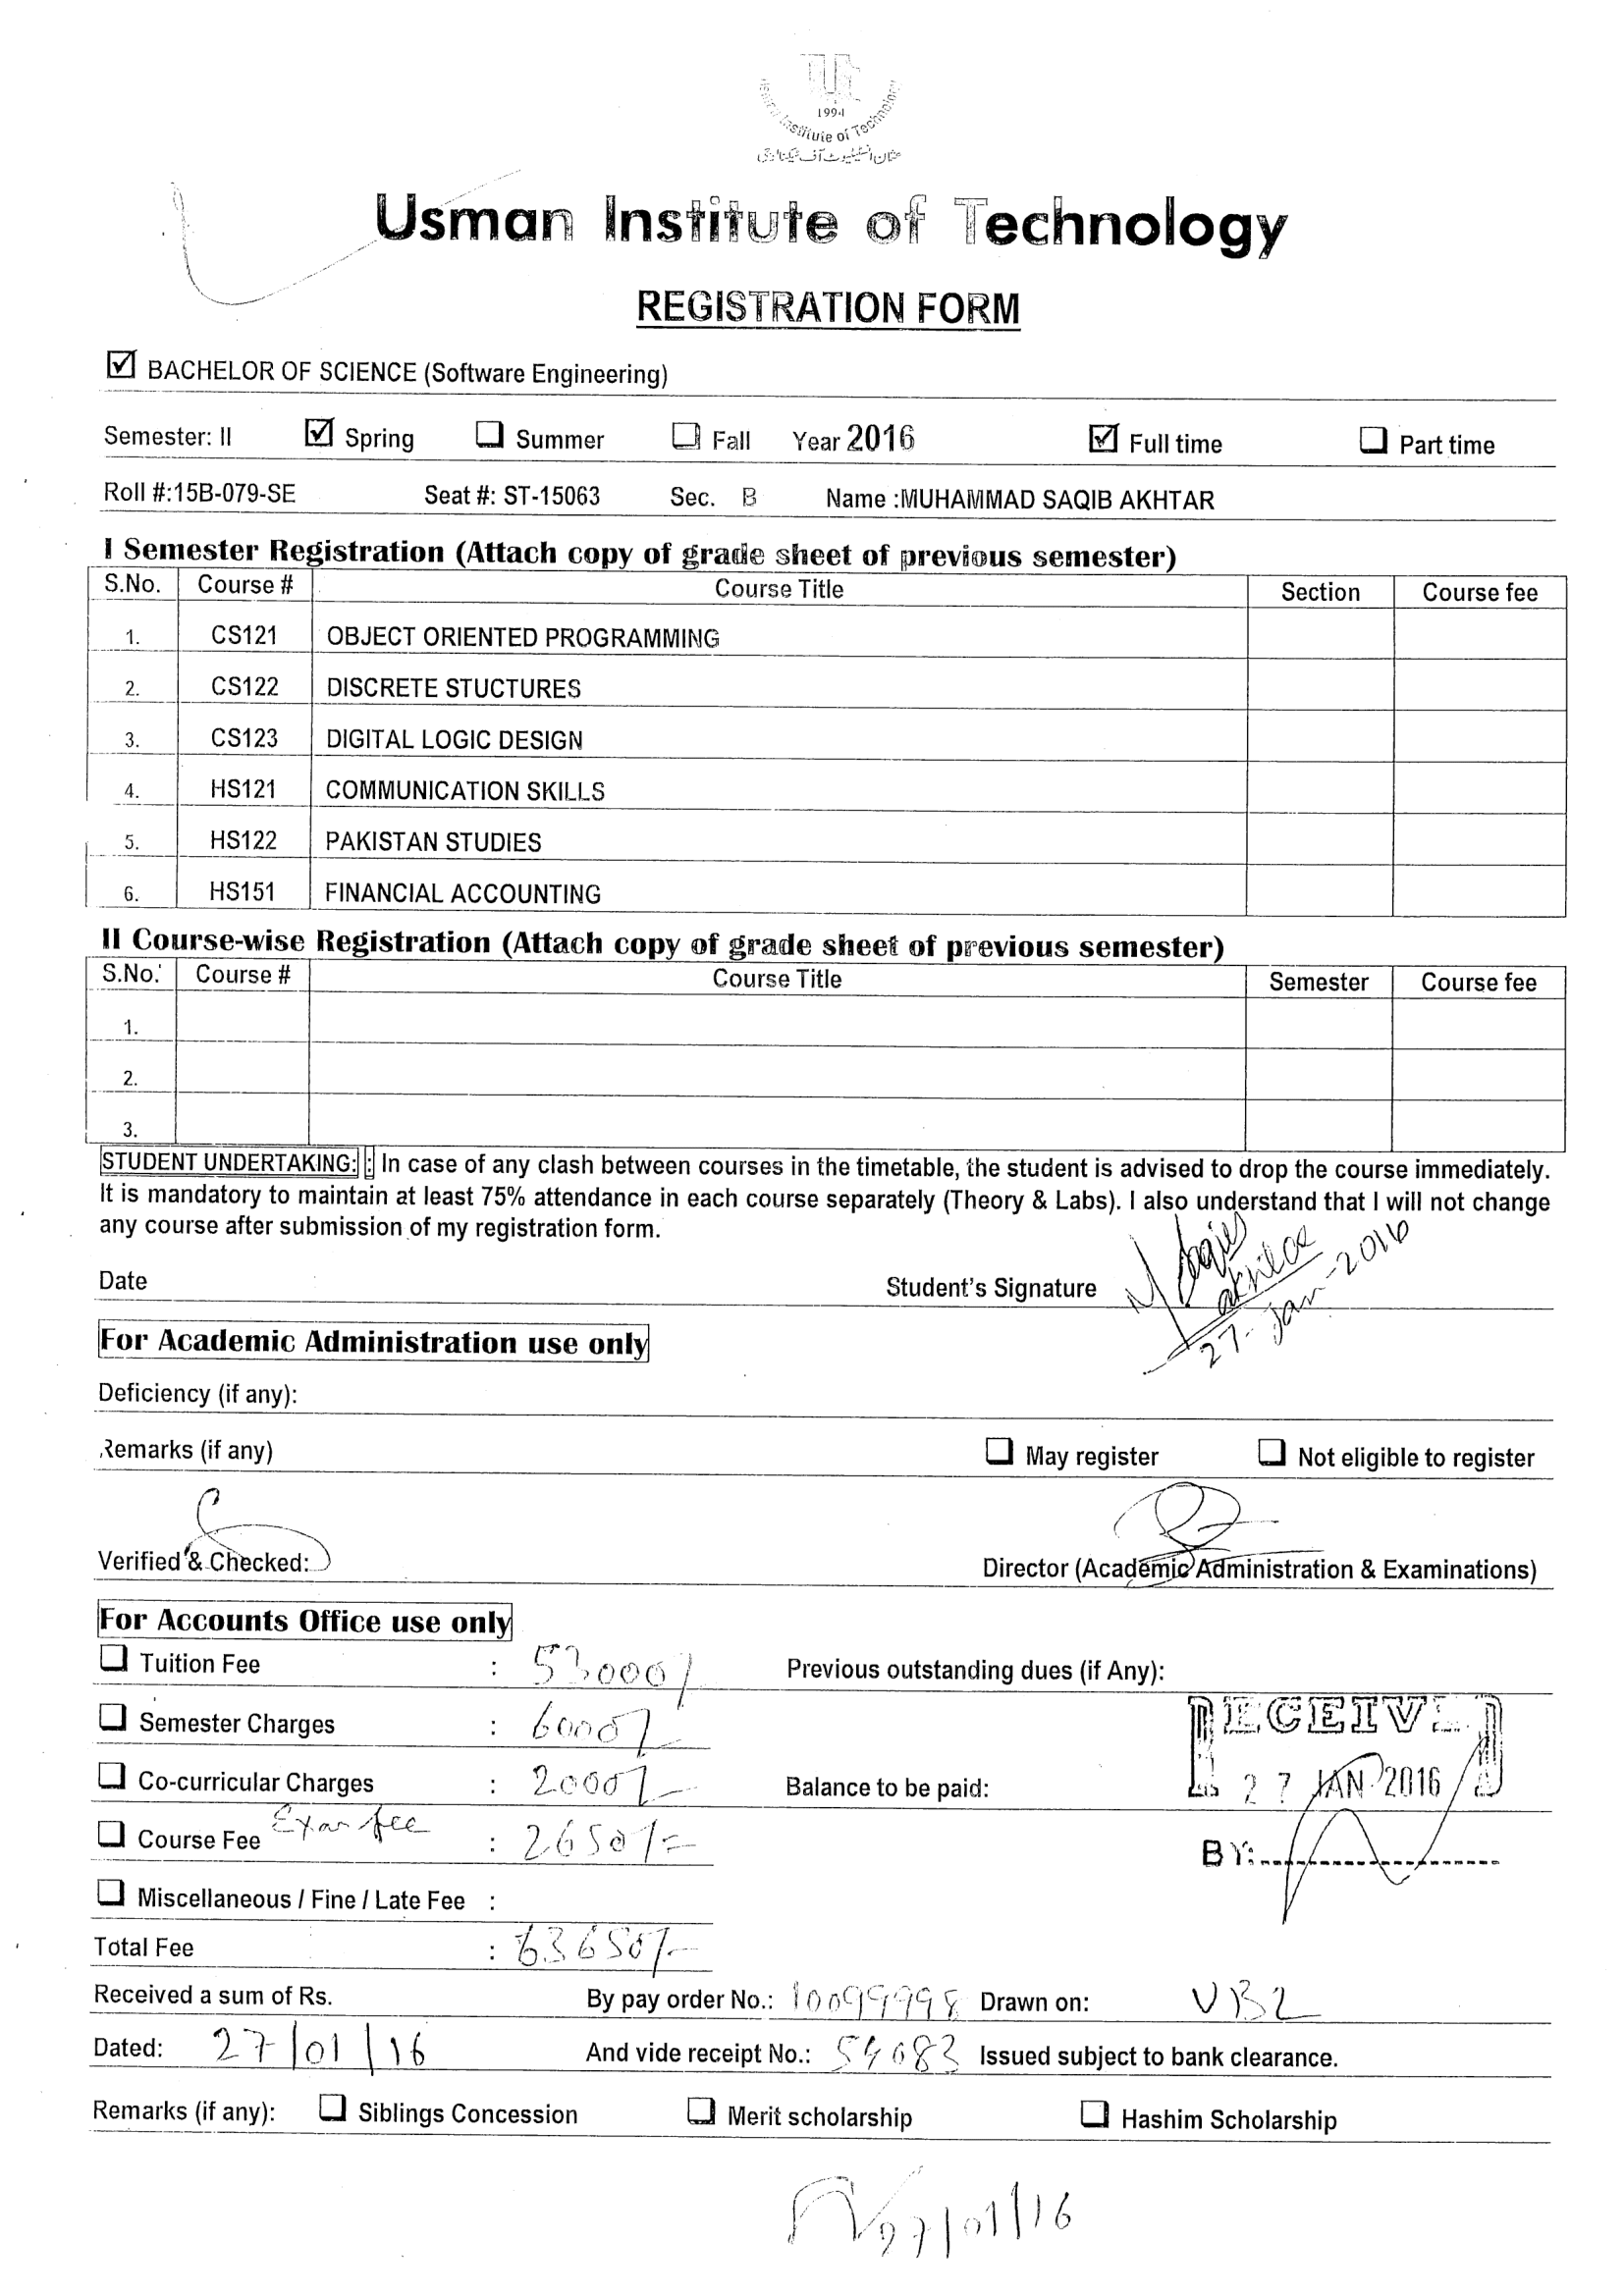 1994
Institute of Technology
عثمان انسٹیٹیوٹ آف ٹیکنالوجی
Usman Institute of Technology
REGISTRATION FORM
☑ BACHELOR OF SCIENCE (Software Engineering)
Semester: II ☑ Spring ☐ Summer ☐ Fall Year 2016 ☑ Full time ☐ Part time
Roll #:15B-079-SE Seat #: ST-15063 Sec. B Name :MUHAMMAD SAQIB AKHTAR
I Semester Registration (Attach copy of grade sheet of previous semester)
S.No. Course # Course Title Section Course fee
1. CS121 OBJECT ORIENTED PROGRAMMING
2. CS122 DISCRETE STUCTURES
3. CS123 DIGITAL LOGIC DESIGN
4. HS121 COMMUNICATION SKILLS
5. HS122 PAKISTAN STUDIES
6. HS151 FINANCIAL ACCOUNTING
II Course-wise Registration (Attach copy of grade sheet of previous semester)
S.No. Course # Course Title Semester Course fee
1.
2.
3.
STUDENT UNDERTAKING: : In case of any clash between courses in the timetable, the student is advised to drop the course immediately.
It is mandatory to maintain at least 75% attendance in each course separately (Theory & Labs). I also understand that I will not change
any course after submission of my registration form.
Date Student's Signature
27-Jan-2016
For Academic Administration use only
Deficiency (if any):
Remarks (if any) ☐ May register ☐ Not eligible to register
Verified & Checked: Director (Academic Administration & Examinations)
For Accounts Office use only
☐ Tuition Fee : 53000/ Previous outstanding dues (if Any):
☐ Semester Charges : 6000/- RECEIVED
☐ Co-curricular Charges : 2000/- Balance to be paid: 27 JAN 2016
☐ Course Fee Exam fee : 2650/= BY:
☐ Miscellaneous / Fine / Late Fee :
Total Fee : 63650/-
Received a sum of Rs. By pay order No.: 10099998 Drawn on: UBL
Dated: 27/01/16 And vide receipt No.: 54083 Issued subject to bank clearance.
Remarks (if any): ☐ Siblings Concession ☐ Merit scholarship ☐ Hashim Scholarship
27/01/16